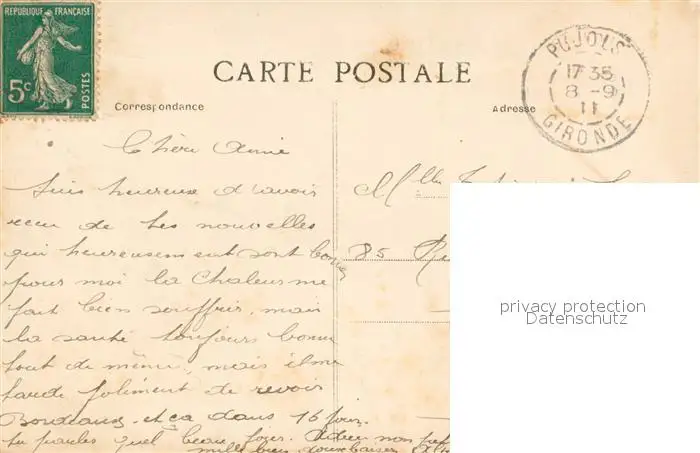 REPUBLIQUE FRANÇAISE
5c POSTES
CARTE POSTALE
PUJOLS
17 35
8 - 9
11
GIRONDE
Correspondance
Adresse
Chère Amie
Suis heureuse d'avoir
recu de tes nouvelles
qui heureusement sont bonnes
pour moi la Chaleur me
fait bien souffrir, mais
la santé toujours bonne
tout de même, mais il me
tarde joliment de revoir
Bordeaux et ça dans 16 jours.
tu parles quel beau jour. Adieu
mille bien doux baisers
Mlle
85 Ru
privacy protection
Datenschutz